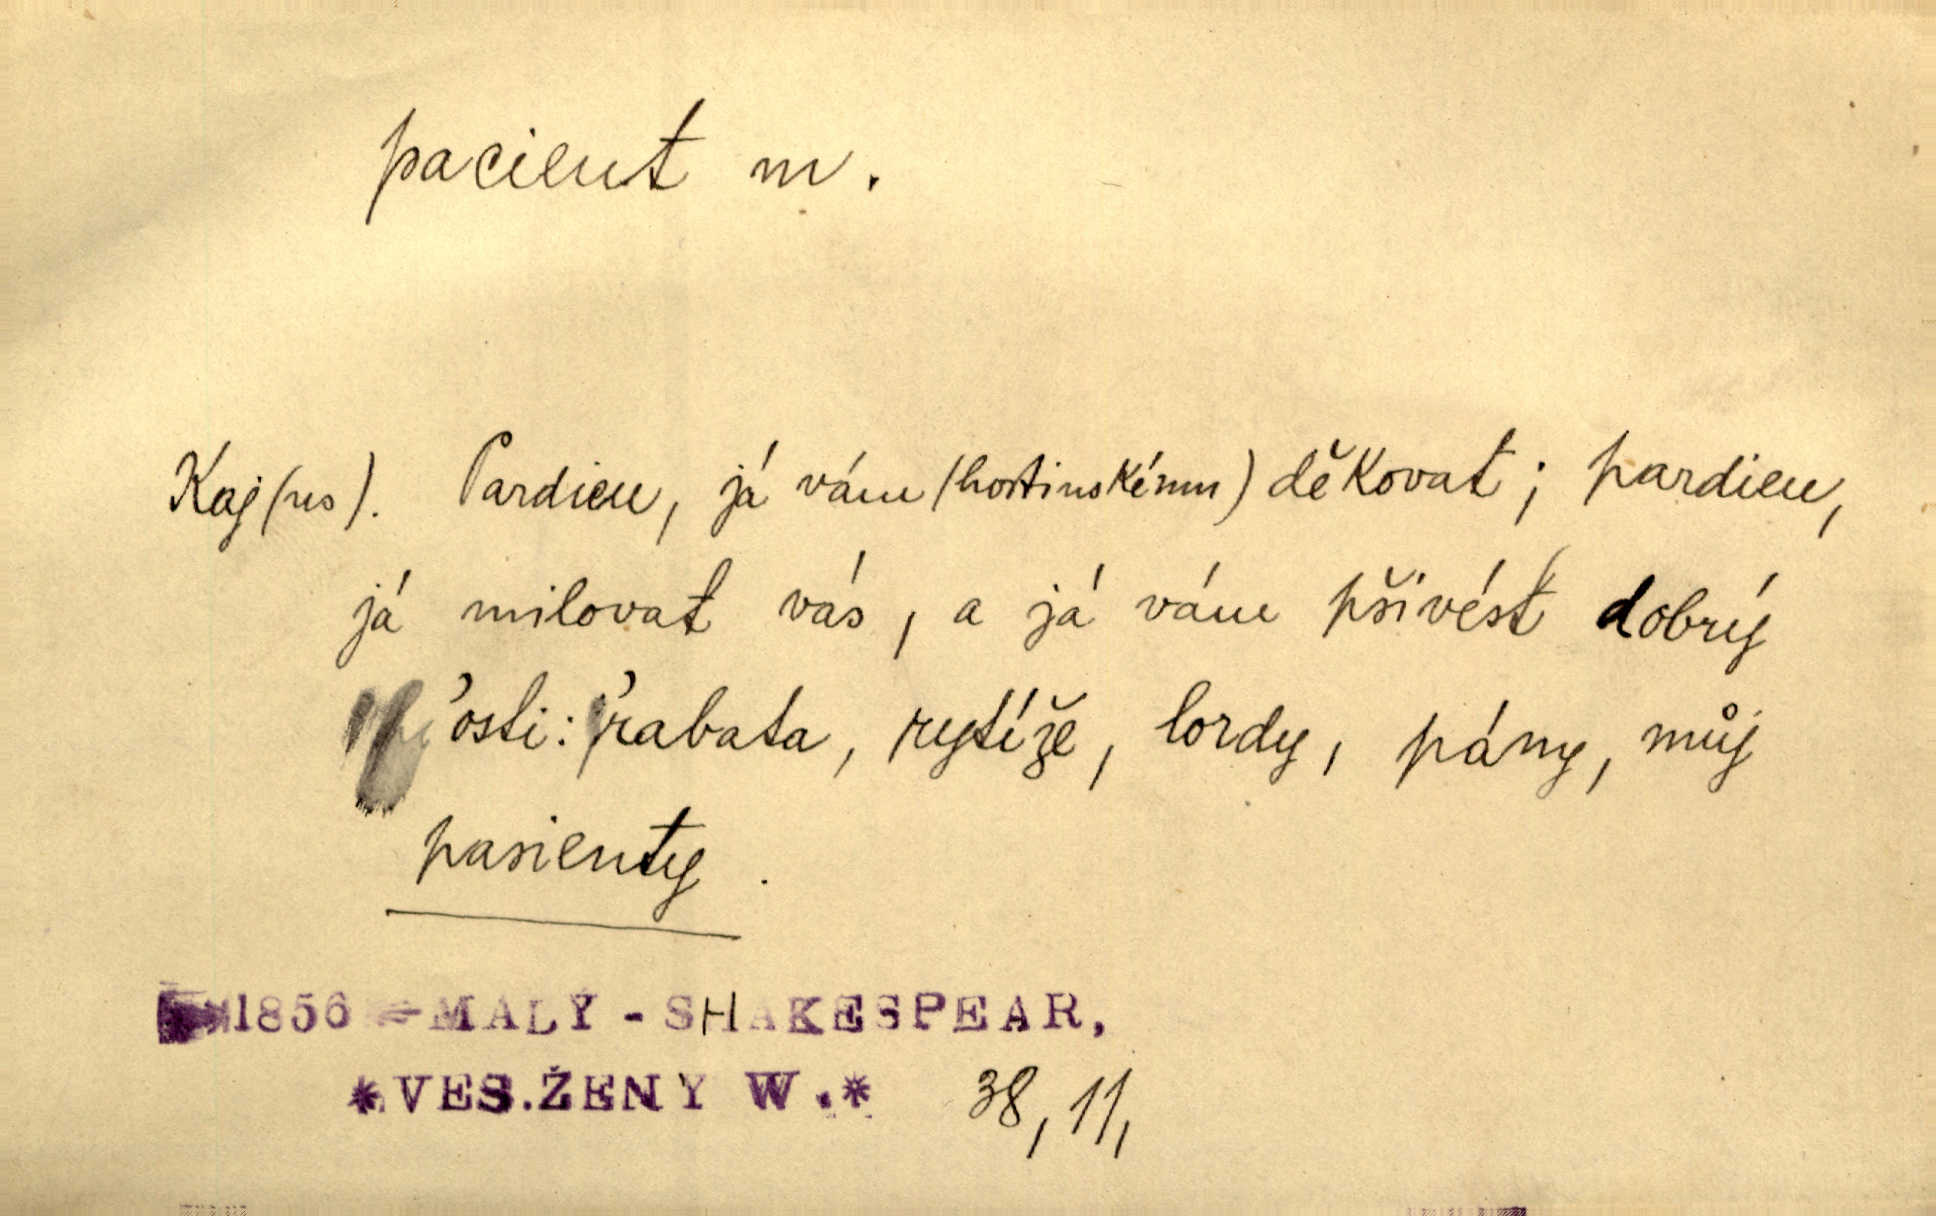 pacient m.
Kaj(us). Pardieu, já vám (hostinskému) děkovat; pardieu,
já milovat vás, a já vám pšivést dobrý
'osti: 'rabata, rytíže, lordy, pány, můj
pasienty.
1856 - MALÝ - SHAKESPEAR,
*VES.ŽENY W.* 38, 11,